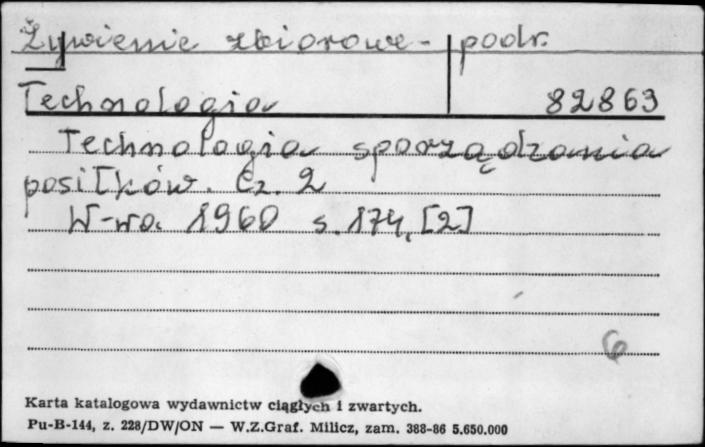 Żywienie zbiorowe - podr.
Technologia 82863
Technologia sporządzania
posiłków. Cz. 2
W-wa. 1960 s. 174, [2]
6
Karta katalogowa wydawnictw ciągłych i zwartych.
Pu-B-144, z. 228/DW/ON — W.Z.Graf. Milicz, zam. 388-86 5.650.000